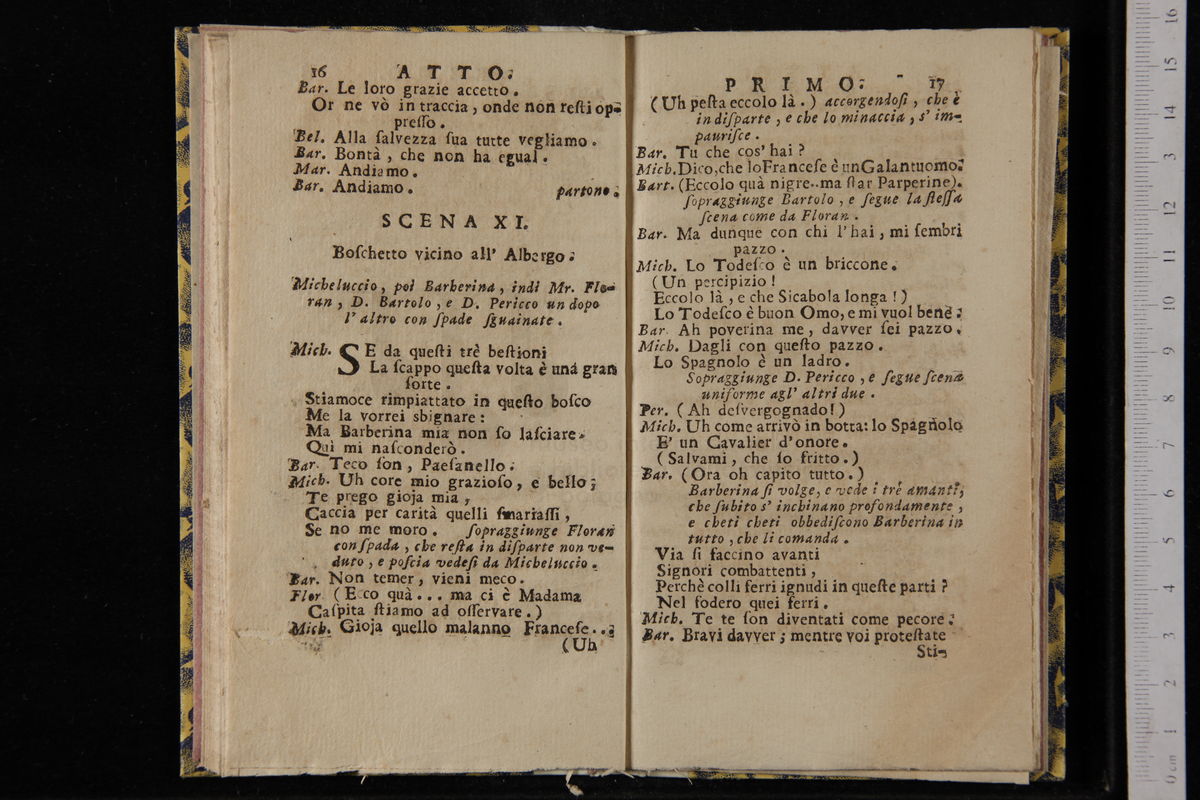 16 ATTO.
Bar. Le loro grazie accetto.
Or ne vò in traccia, onde non reſti op-
preſſo.
Bel. Alla ſalvezza ſua tutte vegliamo.
Bar. Bontà, che non ha egual.
Mar. Andiamo.
Bar. Andiamo. partono.
SCENA XI.
Boſchetto vicino all' Albergo.
Micheluccio, poi Barberina, indi Mr. Flo-
ran, D. Bartolo, e D. Pericco un dopo
l' altro con ſpade ſguainate.
Mich. SE da queſti trè beſtioni
La ſcappo queſta volta è una gran
ſorte.
Stiamoce rimpiattato in queſto boſco
Me la vorrei sbignare:
Ma Barberina mia non ſo laſciare.
Quì mi naſconderò.
Bar. Teco ſon, Paeſanello.
Mich. Uh core mio grazioſo, e bello;
Te prego gioja mia,
Caccia per carità quelli ſmariaſſi,
Se no me moro. ſopraggiunge Floran
con ſpada, che reſta in diſparte non ve-
duto, e poſcia vedeſi da Micheluccio.
Bar. Non temer, vieni meco.
Flor (Ecco quà... ma ci è Madama
Caſpita ſtiamo ad oſſervare.)
Mich. Gioja quello malanno Franceſe...
(Uh
PRIMO. 17
(Uh peſta eccolo là.) accorgendoſi, che è
in diſparte, e che lo minaccia, s' im-
pauriſce.
Bar. Tu che cos' hai?
Mich. Dico, che lo Franceſe è un Galantuomo.
Bart. (Eccolo quà nigre.. ma ſtar Parperine).
ſopraggiunge Bartolo, e ſegue la ſteſſa
ſcena come da Floran.
Bar. Ma dunque con chi l' hai, mi ſembri
pazzo.
Mich. Lo Todeſco è un briccone.
(Un percipizio!
Eccolo là, e che Sicabola longa!)
Lo Todeſco è buon Omo, e mi vuol bene.
Bar. Ah poverina me, davver ſei pazzo.
Mich. Dagli con queſto pazzo.
Lo Spagnolo è un ladro.
Sopraggiunge D. Pericco, e ſegue ſcena
uniforme agl' altri due.
Per. (Ah deſvergognado!)
Mich. Uh come arrivò in botta: lo Spagnolo
E' un Cavalier d'onore.
(Salvami, che ſo fritto.)
Bar. (Ora oh capito tutto.)
Barberina ſi volge, e vede i trè amanti,
che ſubito s' inchinano profondamente,
e cheti cheti obbediſcono Barberina in
tutto, che li comanda.
Via ſi faccino avanti
Signori combattenti,
Perchè colli ferri ignudi in queſte parti?
Nel fodero quei ferri.
Mich. Te te ſon diventati come pecore.
Bar. Bravi davver; mentre voi proteſtate
Sti-
0 cm 1 2 3 4 5 6 7 8 9 10 11 12 13 14 15 16